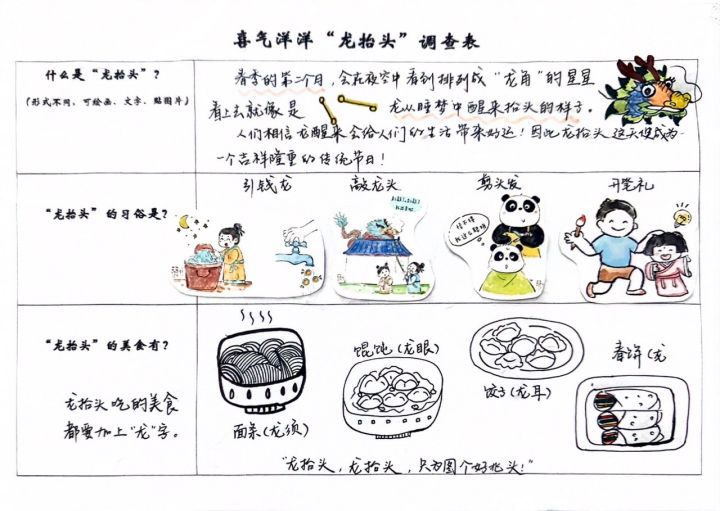 喜气洋洋“龙抬头”调查表
什么是“龙抬头”？
(形式不同、可绘画、文字、贴图片)
春季的第二个月，会在夜空中看到排列成“龙角”的星星
看上去就像是 龙从睡梦中醒来抬头的样子。
人们相信龙醒来会给人们的生活带来好运！因此龙抬头这天便成为
一个吉祥隆重的传统节日！
“龙抬头”的习俗是？
引钱龙
敲龙头
剪头发
开笔礼
“龙抬头”的美食有？
龙抬头吃的美食
都要加上“龙”字。
面条(龙须)
馄饨(龙眼)
饺子(龙耳)
春饼(龙
“龙抬头，龙抬头，只为图个好兆头!”